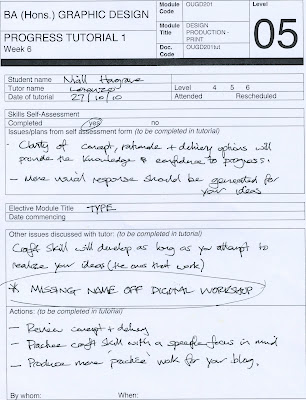 BA (Hons.) GRAPHIC DESIGN
PROGRESS TUTORIAL 1
Week 6
Module Code
OUGD201
Module Title
DESIGN PRODUCTION - PRINT
Doc. Code
OUGD201tut
Level
05
Student name Niall Hargrave
Tutor name Lorenzo
Level 4 5 6
Date of tutorial 27/10/10
Attended Rescheduled
Skills Self-Assessment
Completed yes no
Issues/plans from self assessment form (to be completed in tutorial)
- Clarity of concept, rationale + delivery options will
provide the knowledge & confidence to progress.
- More visual response should be generated for
your ideas
Elective Module Title - TYPE
Date commencing
Other issues discussed with tutor: (to be completed in tutorial)
Craft skill will develop as long as you attempt to
realize your ideas (the ones that work)
* MISSING NAME OFF DIGITAL WORKSHOP
Actions: (to be completed in tutorial)
- Review concept + delivery
- Practice craft skill with a specific focus in mind
- Produce more 'practice' work for your blog.
By whom: When: